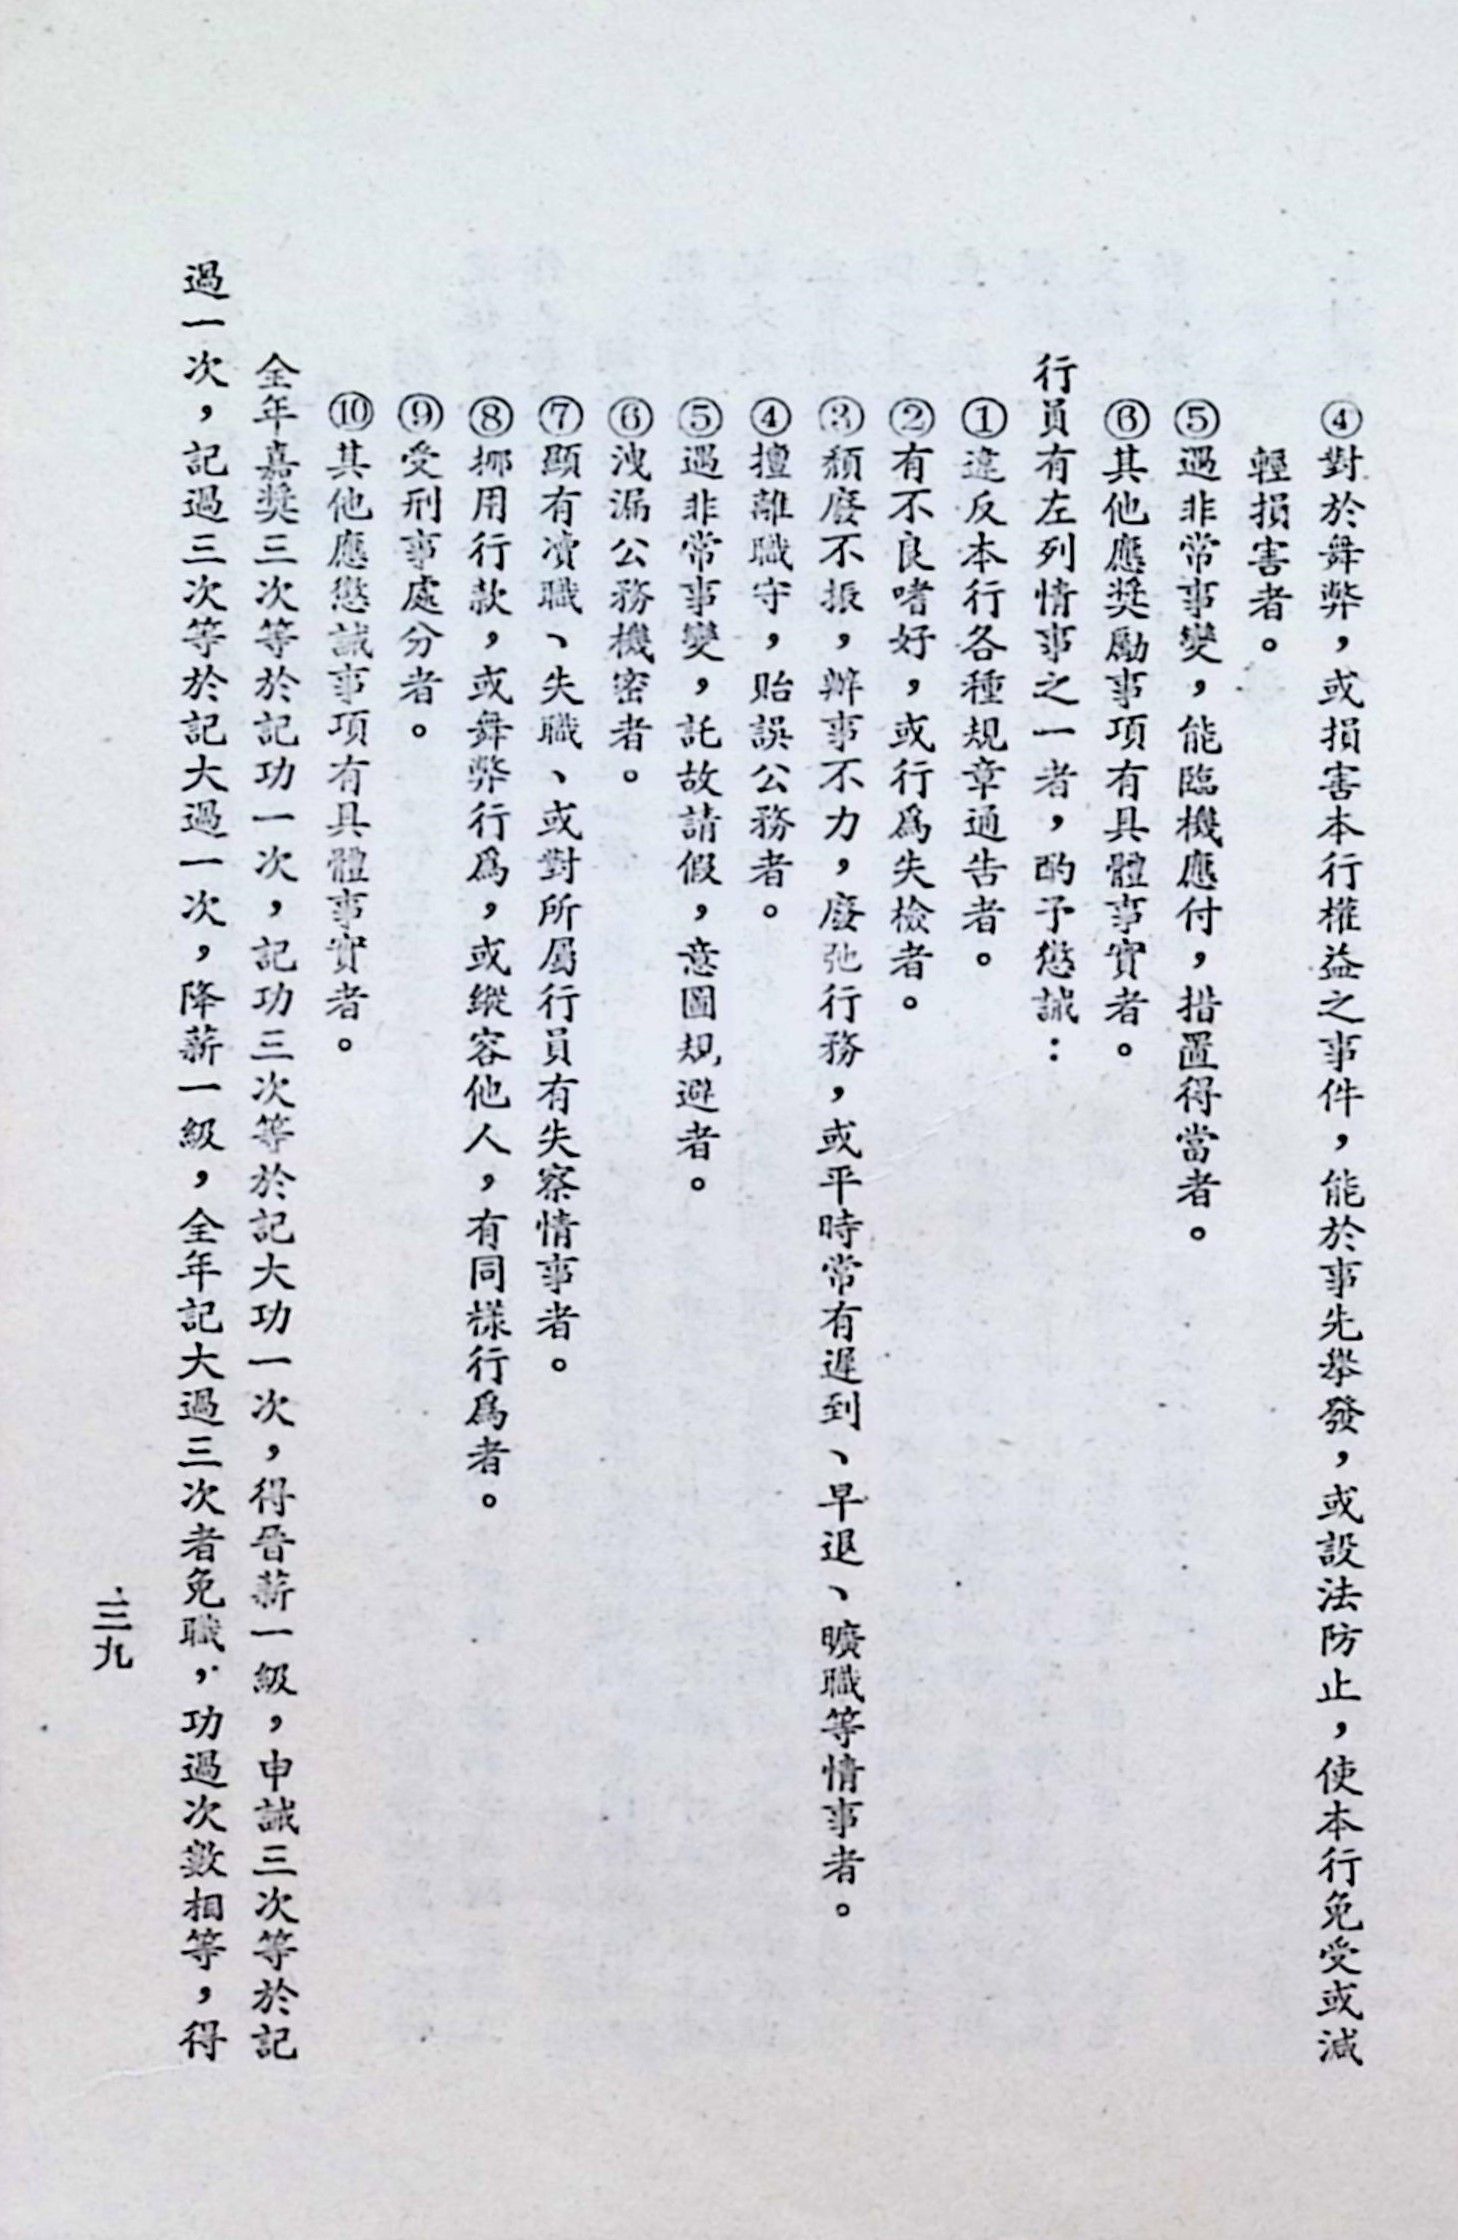 ④對於舞弊，或損害本行權益之事件，能於事先舉發，或設法防止，使本行免受或減
輕損害者。
⑤遇非常事變，能臨機應付，措置得當者。
⑥其他應獎勵事項有具體事實者。
行員有左列情事之一者，酌予懲誡：
①違反本行各種規章通告者。
②有不良嗜好，或行爲失檢者。
③頹廢不振，辦事不力，廢弛行務，或平時常有遲到、早退、曠職等情事者。
④擅離職守，貽誤公務者。
⑤遇非常事變，託故請假，意圖規避者。
⑥洩漏公務機密者。
⑦顯有凟職、失職、或對所屬行員有失察情事者。
⑧挪用行款，或舞弊行爲，或縱容他人，有同樣行爲者。
⑨受刑事處分者。
⑩其他應懲誡事項有具體事實者。
全年嘉獎三次等於記功一次，記功三次等於記大功一次，得晉薪一級，申誡三次等於記
過一次，記過三次等於記大過一次，降薪一級，全年記大過三次者免職，功過次數相等，得
三九